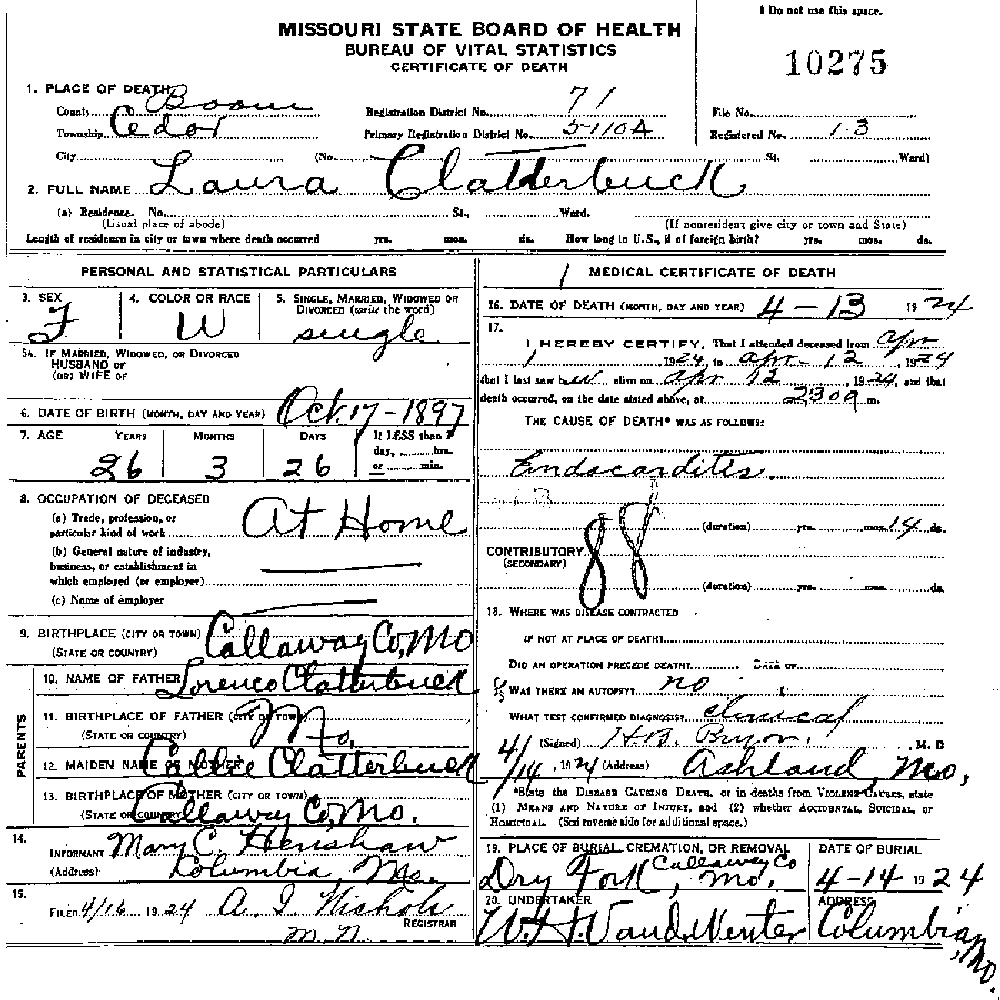 † Do not use this space.
MISSOURI STATE BOARD OF HEALTH
BUREAU OF VITAL STATISTICS
CERTIFICATE OF DEATH
10275
1. PLACE OF DEATH
County Boone Registration District No. 71 File No.
Township Cedar Primary Registration District No. 5110A Registered No. 13
City (No. St. Ward)
2. FULL NAME Laura Clatterbuck
(a) Residence. No. St., Ward.
(Usual place of abode) (If nonresident give city or town and State)
Length of residence in city or town where death occurred yrs. mos. ds. How long in U.S., if of foreign birth? yrs. mos. ds.
PERSONAL AND STATISTICAL PARTICULARS
3. SEX 4. COLOR OR RACE 5. SINGLE, MARRIED, WIDOWED OR
DIVORCED (write the word)
F W single
5A. IF MARRIED, WIDOWED, OR DIVORCED
HUSBAND OF
(OR) WIFE OF
6. DATE OF BIRTH (MONTH, DAY AND YEAR) Oct. 17 - 1897
7. AGE YEARS MONTHS DAYS If LESS than 1
day, hrs.
26 3 26 or min.
8. OCCUPATION OF DECEASED
(a) Trade, profession, or
particular kind of work At Home
(b) General nature of industry,
business, or establishment in
which employed (or employer)
(c) Name of employer
9. BIRTHPLACE (CITY OR TOWN) Callaway Co, Mo
(STATE OR COUNTRY)
PARENTS
10. NAME OF FATHER Lorenco Clatterbuck
11. BIRTHPLACE OF FATHER (CITY OR TOWN) Mo.
(STATE OR COUNTRY)
12. MAIDEN NAME OF MOTHER Callie Clatterbuck
13. BIRTHPLACE OF MOTHER (CITY OR TOWN)
(STATE OR COUNTRY) Callaway Co, Mo.
14.
INFORMANT Mary C. Henshaw
(Address) Columbia, Mo.
15.
FILED 4/16 1924 A. I Nichols
M.D. REGISTRAR
MEDICAL CERTIFICATE OF DEATH
16. DATE OF DEATH (MONTH, DAY AND YEAR) 4 - 13 1924
17.
I HEREBY CERTIFY, That I attended deceased from Apr
1 1924, to Apr. 12, 1924
that I last saw her alive on Apr 12, 1924, and that
death occurred, on the date stated above, at 230a m.
THE CAUSE OF DEATH* WAS AS FOLLOWS:
Endocarditis.
88
(duration) yrs. mos. 14 ds.
CONTRIBUTORY
(SECONDARY)
(duration) yrs. mos. ds.
18. WHERE WAS DISEASE CONTRACTED
IF NOT AT PLACE OF DEATH?
DID AN OPERATION PRECEDE DEATH? DATE OF
WAS THERE AN AUTOPSY? no
WHAT TEST CONFIRMED DIAGNOSIS? clinical
(Signed) , M. D
4/14, 1924 (Address) Ashland, Mo,
*State the DISEASE CAUSING DEATH, or in deaths from VIOLENT CAUSES, state
(1) MEANS AND NATURE OF INJURY, and (2) whether ACCIDENTAL, SUICIDAL, or
HOMICIDAL. (See reverse side for additional space.)
19. PLACE OF BURIAL, CREMATION, OR REMOVAL DATE OF BURIAL
Dry Fork, Callaway Co Mo. 4-14 1924
20. UNDERTAKER ADDRESS
W. H. Vandeventer Columbia, Mo.